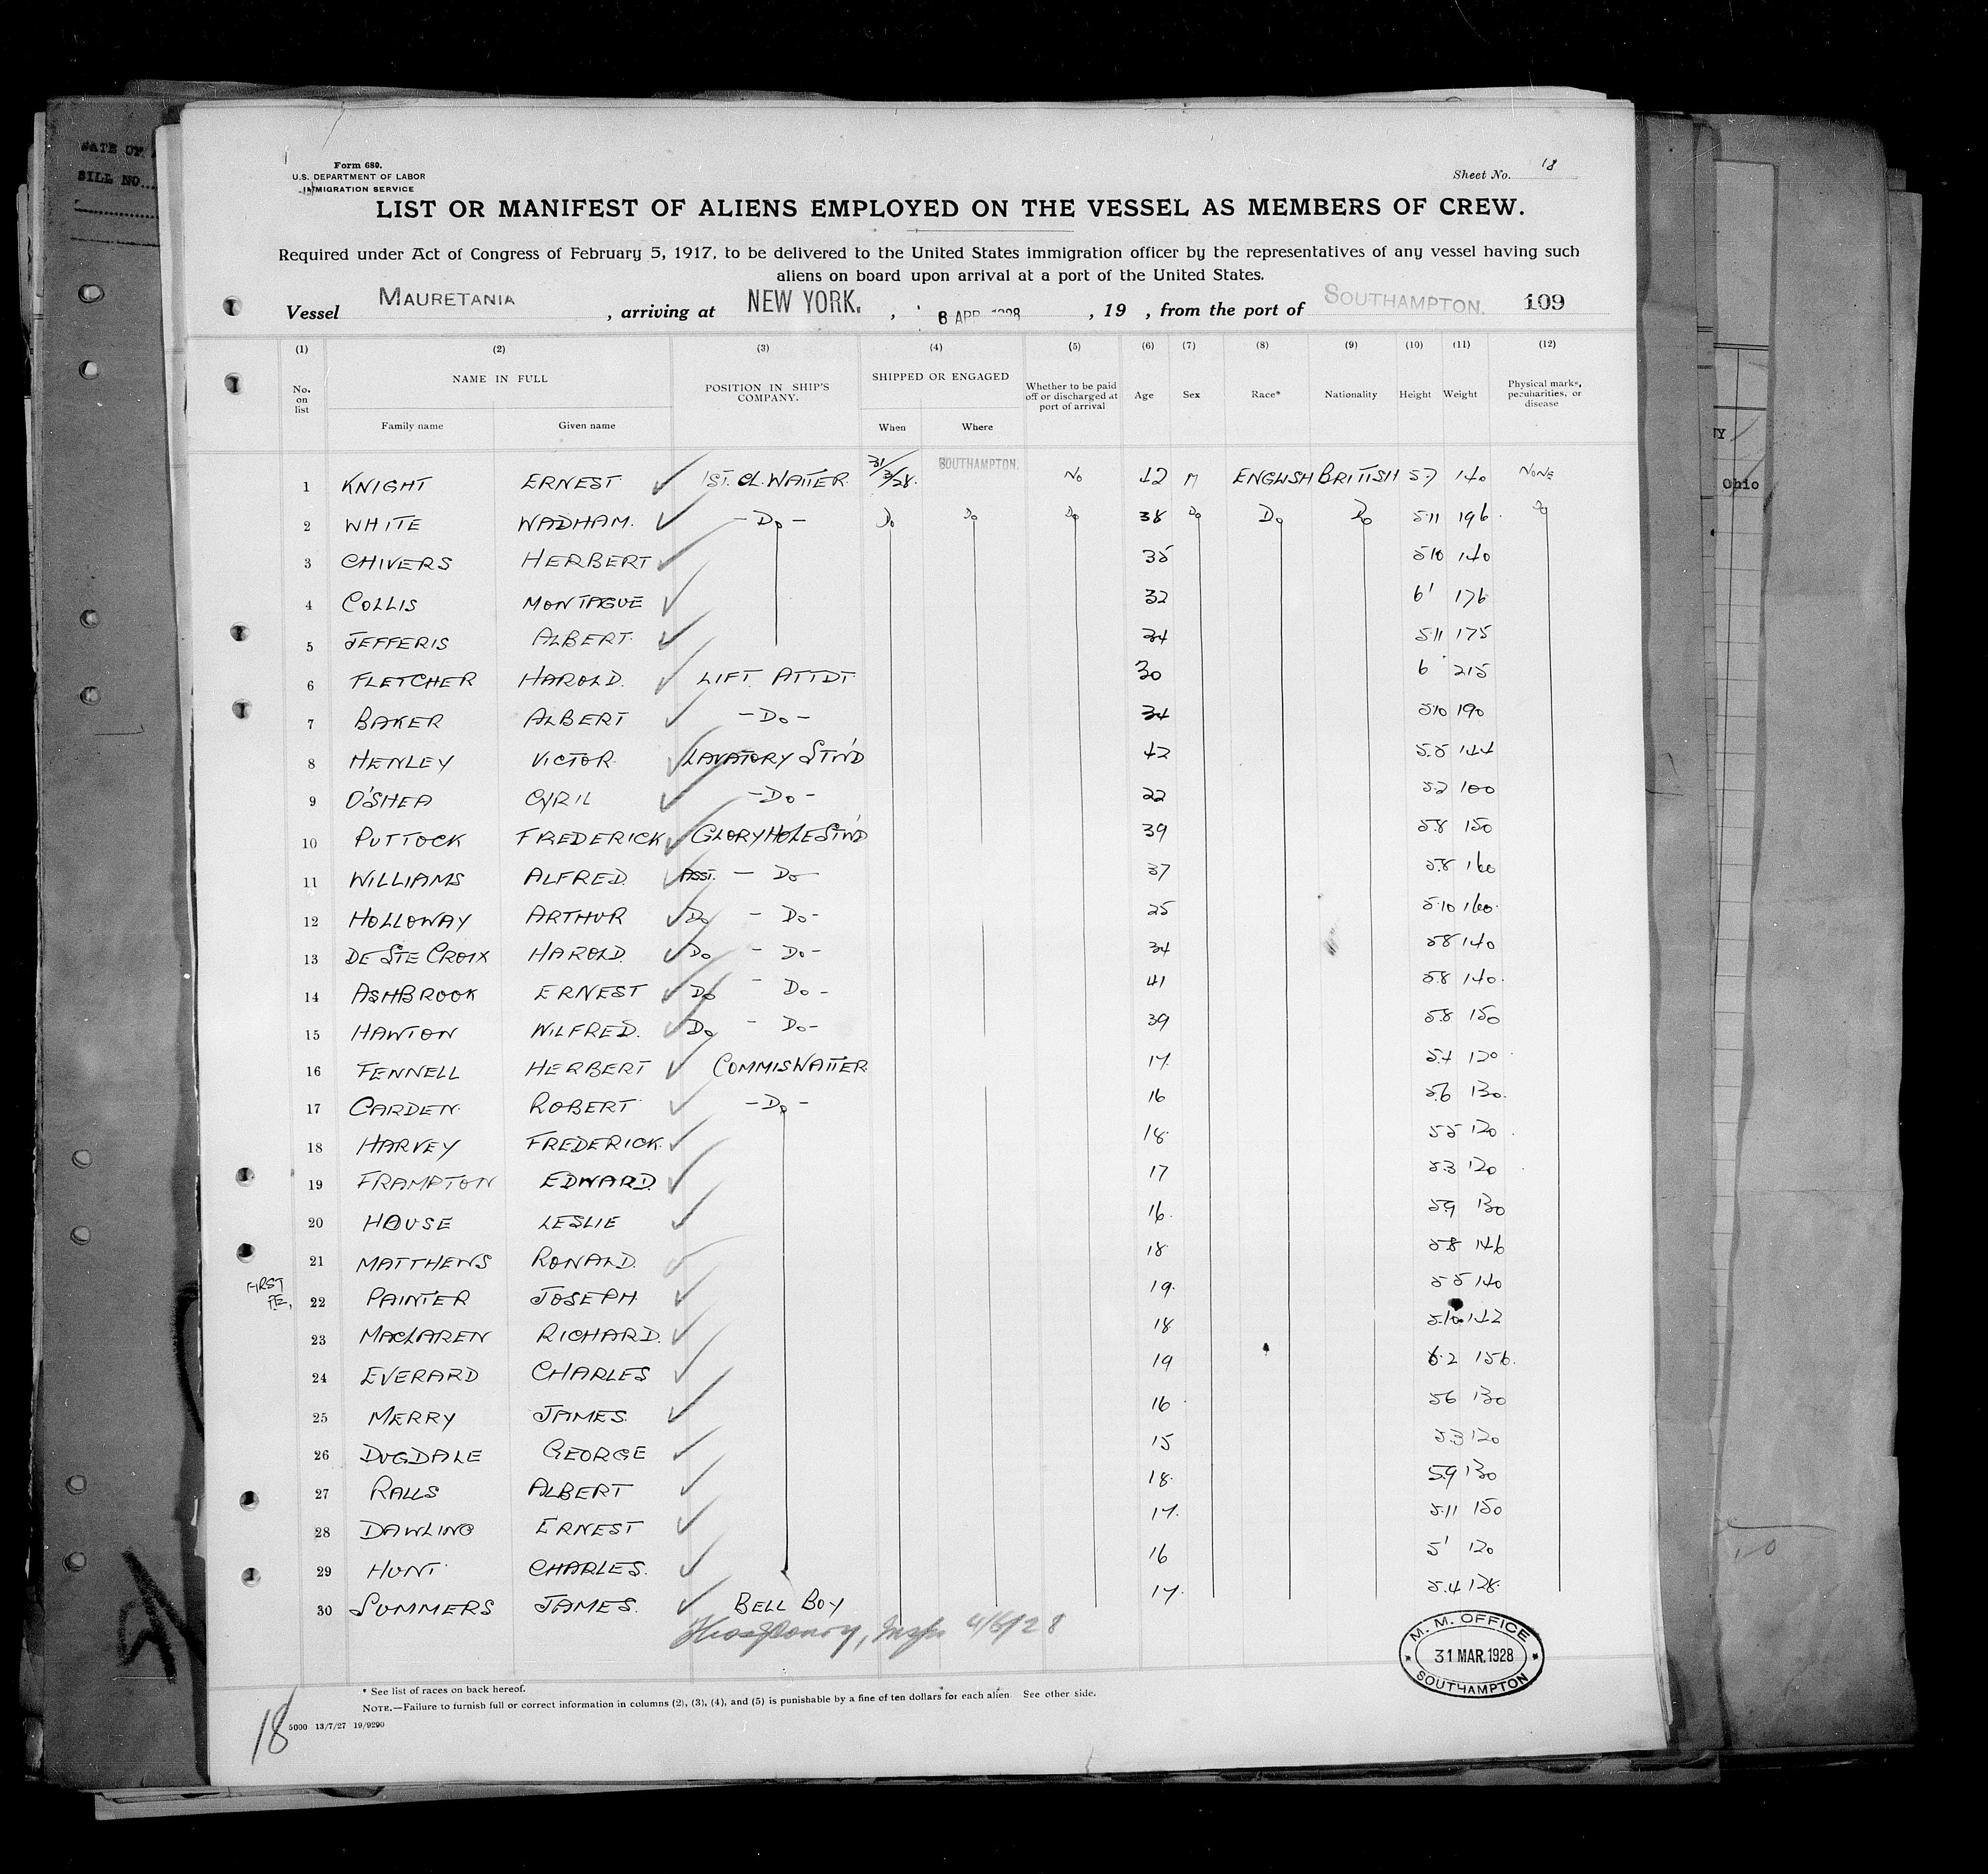 DATE OF
BILL NO.
Form 680.
U.S. DEPARTMENT OF LABOR
IMMIGRATION SERVICE
Sheet No. 18
LIST OR MANIFEST OF ALIENS EMPLOYED ON THE VESSEL AS MEMBERS OF CREW.
Required under Act of Congress of February 5, 1917, to be delivered to the United States immigration officer by the representatives of any vessel having such
aliens on board upon arrival at a port of the United States.
Vessel MAURETANIA , arriving at NEW YORK. , 6 APR 1928 , 19 , from the port of SOUTHAMPTON. 109
(1) (2) (3) (4) (5) (6) (7) (8) (9) (10) (11) (12)
No. on list NAME IN FULL POSITION IN SHIP'S COMPANY. SHIPPED OR ENGAGED Whether to be paid off or discharged at port of arrival Age Sex Race* Nationality Height Weight Physical marks, peculiarities, or disease
Family name Given name When Where
1 KNIGHT ERNEST ✓ 1ST. CL. WAITER 31/3/28. SOUTHAMPTON. NO 42 M ENGLISH BRITISH 5.7 140 NONE
2 WHITE WADHAM. ✓ - Do - Do Do Do 38 Do Do Do 5.11 196 Do
3 CHIVERS HERBERT ✓ 35 5.10 140
4 COLLIS MONTAGUE ✓ 32 6' 176
5 JEFFERIS ALBERT. ✓ 34 5.11 175
6 FLETCHER HAROLD. ✓ LIFT ATTDT 30 6 215
7 BAKER ALBERT ✓ - Do - 34 5.10 190
8 HENLEY VICTOR ✓ LAVATORY STW'D 42 5.5 144
9 O'SHEA CYRIL ✓ - Do - 22 5.2 100
10 PUTTOCK FREDERICK ✓ GLORY HOLE STW'D 39 5.8 150
11 WILLIAMS ALFRED. ✓ ASST. - Do - 37 5.8 160
12 HOLLOWAY ARTHUR ✓ Do - Do - 25 5.10 160
13 DE STE CROIX HAROLD. ✓ Do - Do - 34 5.8 140
14 ASHBROOK ERNEST ✓ Do - Do - 41 5.8 140.
15 HAWTON WILFRED. ✓ Do - Do - 39 5.8 150
16 FENNELL HERBERT ✓ COMMIS WAITER 17. 5.4 120
17 CARDEN ROBERT ✓ - Do - 16 5.6 130.
18 HARVEY FREDERICK. ✓ 18. 5.5 120
19 FRAMPTON EDWARD. ✓ 17 5.3 120
20 HOUSE LESLIE ✓ 16. 5.9 130
21 MATTHEWS RONALD. ✓ 18 5.8 146
FIRST
22 PAINTER JOSEPH ✓ 19. 5.5 140
23 MACLAREN RICHARD. ✓ 18 5.10 142
24 EVERARD CHARLES ✓ 19 6.2 156.
25 MERRY JAMES. ✓ 16 5.6 130
26 DUGDALE GEORGE ✓ 15 5.3 120
27 RALLS ALBERT ✓ 18. 5.9 130
28 DAWLING ERNEST ✓ 17. 5.11 150
29 HUNT CHARLES. ✓ 16 5' 120
30 SUMMERS JAMES. ✓ BELL BOY 17. 5.4 128
4/6/28
M. M. OFFICE
31 MAR. 1928
SOUTHAMPTON
* See list of races on back hereof.
NOTE.—Failure to furnish full or correct information in columns (2), (3), (4), and (5) is punishable by a fine of ten dollars for each alien See other side.
5000 13/7/27 19/9290
18
Ohio